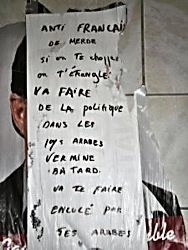 ANTI FRANCAI
DE MERDE
Si on TE choppe
on T'ETRANGLE
VA FAIRE
DE LA politique
DANS LES
pays ARABES
VERMINE
BATARD.
VA TE FAIRE
ENCULÉ par
TES ARABES